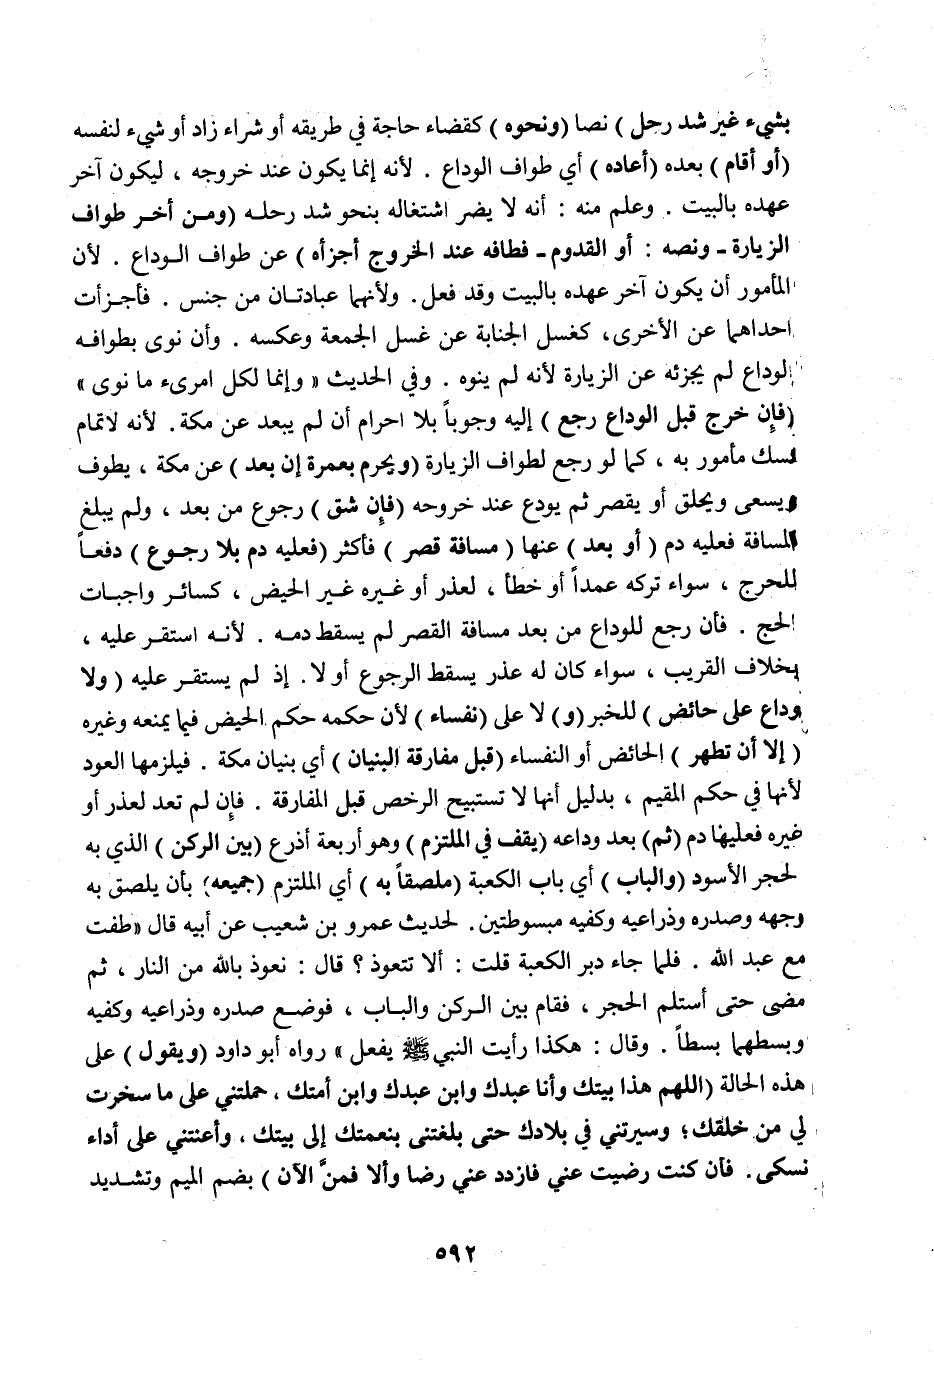 بشيء غير شد رحل ) نصا (ونحوه ) كقضاء حاجة في طريقه أو شراء زاد أو شيء لنفسه
(أو أقام ) بعده (أعاده ) أي طواف الوداع . لأنه إنما يكون عند خروجه ، ليكون آخر
عهده بالبيت . وعلم منه : أنه لا يضر اشتغاله بنحو شد رحله (ومن أخر طواف
الزيارة - ونصه : أو القدوم - فطافه عند الخروج أجزأه ) عن طواف الوداع . لأن
المأمور أن يكون آخر عهده بالبيت وقد فعل . ولأنهما عبادتان من جنس . فأجزأت
احداهما عن الأخرى، كغسل الجنابة عن غسل الجمعة وعكسه . وأن نوى بطوافه
الوداع لم يجزئه عن الزيارة لأنه لم ينوه . وفي الحديث « وإنما لكل امرىء ما نوى »
(فإن خرج قبل الوداع رجع ) إليه وجوباً بلا احرام أن لم يبعد عن مكة. لأنه لاتمام
نسك مأمور به ، كما لو رجع لطواف الزيارة (ويحرم بعمرة إن بعد ) عن مكة ، يطوف
ويسعى ويحلق أو يقصر ثم يودع عند خروحه (فإن شق ) رجوع من بعد ، ولم يبلغ
المسافة فعليه دم ( أو بعد ) عنها ( مسافة قصر ) فأكثر (فعليه دم بلا رجوع ) دفعاً
للحرج ، سواء تركه عمداً أو خطأ ، لعذر أو غيره غير الحيض ، كسائر واجبات
الحج . فأن رجع للوداع من بعد مسافة القصر لم يسقط دمه . لأنه استقر عليه ،
بخلاف القريب ، سواء كان له عذر يسقط الرجوع أو لا. إذ لم يستقر عليه ( ولا
وداع على حائض ) للخبر (و) لا على (نفساء ) لأن حكمه حكم الحيض فيما يمنعه وغيره
( إلا أن تطهر ) الحائض أو النفساء (قبل مفارقة البنيان ) أي بنيان مكة . فيلزمها العود
لأنها في حكم المقيم ، بدليل أنها لا تستبيح الرخص قبل المفارقة . فإن لم تعد لعذر أو
غيره فعليها دم (ثم) بعد وداعه (يقف في الملتزم ) وهو أربعة أذرع (بين الركن ) الذي به
لحجر الأسود (والباب ) أي باب الكعبة (ملصقاً به ) أي الملتزم (جميعه) بأن يلصق به
وجهه وصدره وذراعيه وكفيه مبسوطتين. لحديث عمرو بن شعيب عن أبيه قال «طفت
مع عبد الله . فلما جاء دبر الكعبة قلت : ألا تتعوذ ؟ قال : نعوذ بالله من النار ، ثم
مضى حتى أستلم الحجر ، فقام بين الركن والباب ، فوضع صدره وذراعيه وكفيه
وبسطهما بسطاً . وقال : هكذا رأيت النبي ﷺ يفعل » رواه أبو داود (ويقول ) على
هذه الحالة (اللهم هذا بيتك وأنا عبدك وابن عبدك وابن أمتك ، حملتني على ما سخرت
لي من خلقك؛ وسيرتني في بلادك حتى بلغتنى بنعمتك إلى بيتك ، وأعنتني على أداء
نسكى. فأن كنت رضيت عني فازدد عني رضا وألا فمنَّ الآن ) بضم الميم وتشديد
٥٩٢